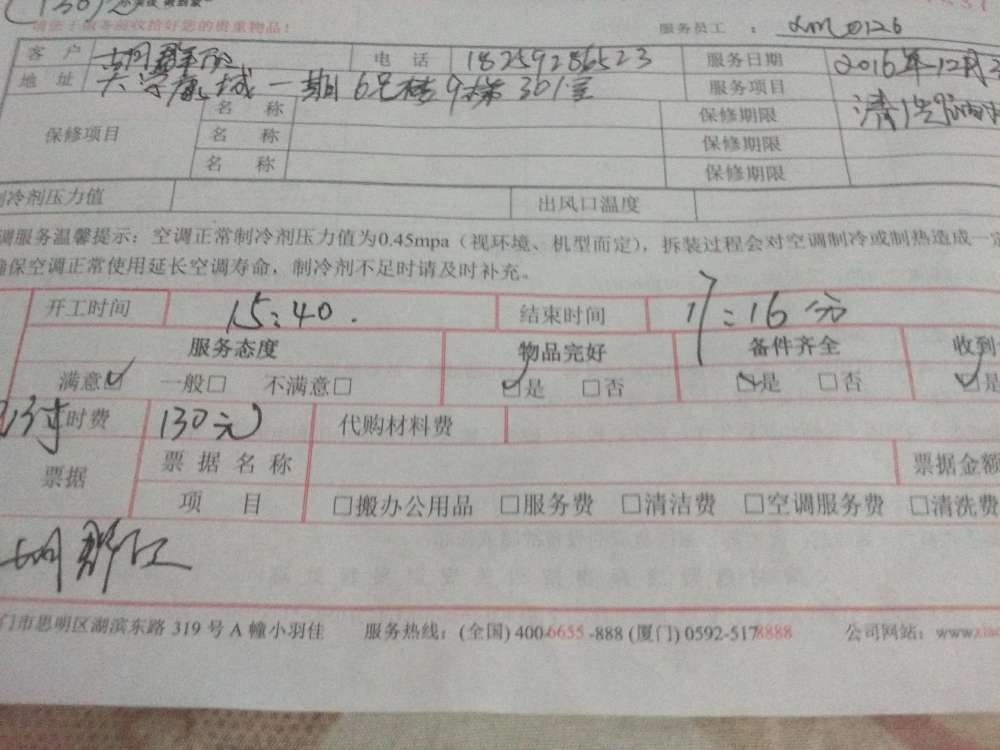 (130)元
请您于服务前收拾好您的贵重物品！ 服务员工 ： xm0126
客 户 电 话 18259286523 服务日期 2016年12月
地 址 一期6号楼9梯301室 服务项目 清洗
保修项目 名 称 保修期限
名 称 保修期限
名 称 保修期限
制冷剂压力值 出风口温度
调服务温馨提示：空调正常制冷剂压力值为0.45mpa（视环境、机型而定），拆装过程会对空调制冷或制热造成一定
确保空调正常使用延长空调寿命，制冷剂不足时请及时补充。
开工时间 15:40. 结束时间 17:16分
服务态度 物品完好 备件齐全 收到
满意☑ 一般□ 不满意□ ☑是 □否 ☑是 □否 ☑是
时费 130元 代购材料费
票据 票 据 名 称 票据金额
项 目 □搬办公用品 □服务费 □清洁费 □空调服务费 □清洗费
门市思明区湖滨东路 319 号 A 幢小羽佳 服务热线：(全国) 400-6655-888 (厦门) 0592-5178888 公司网站：www.xia